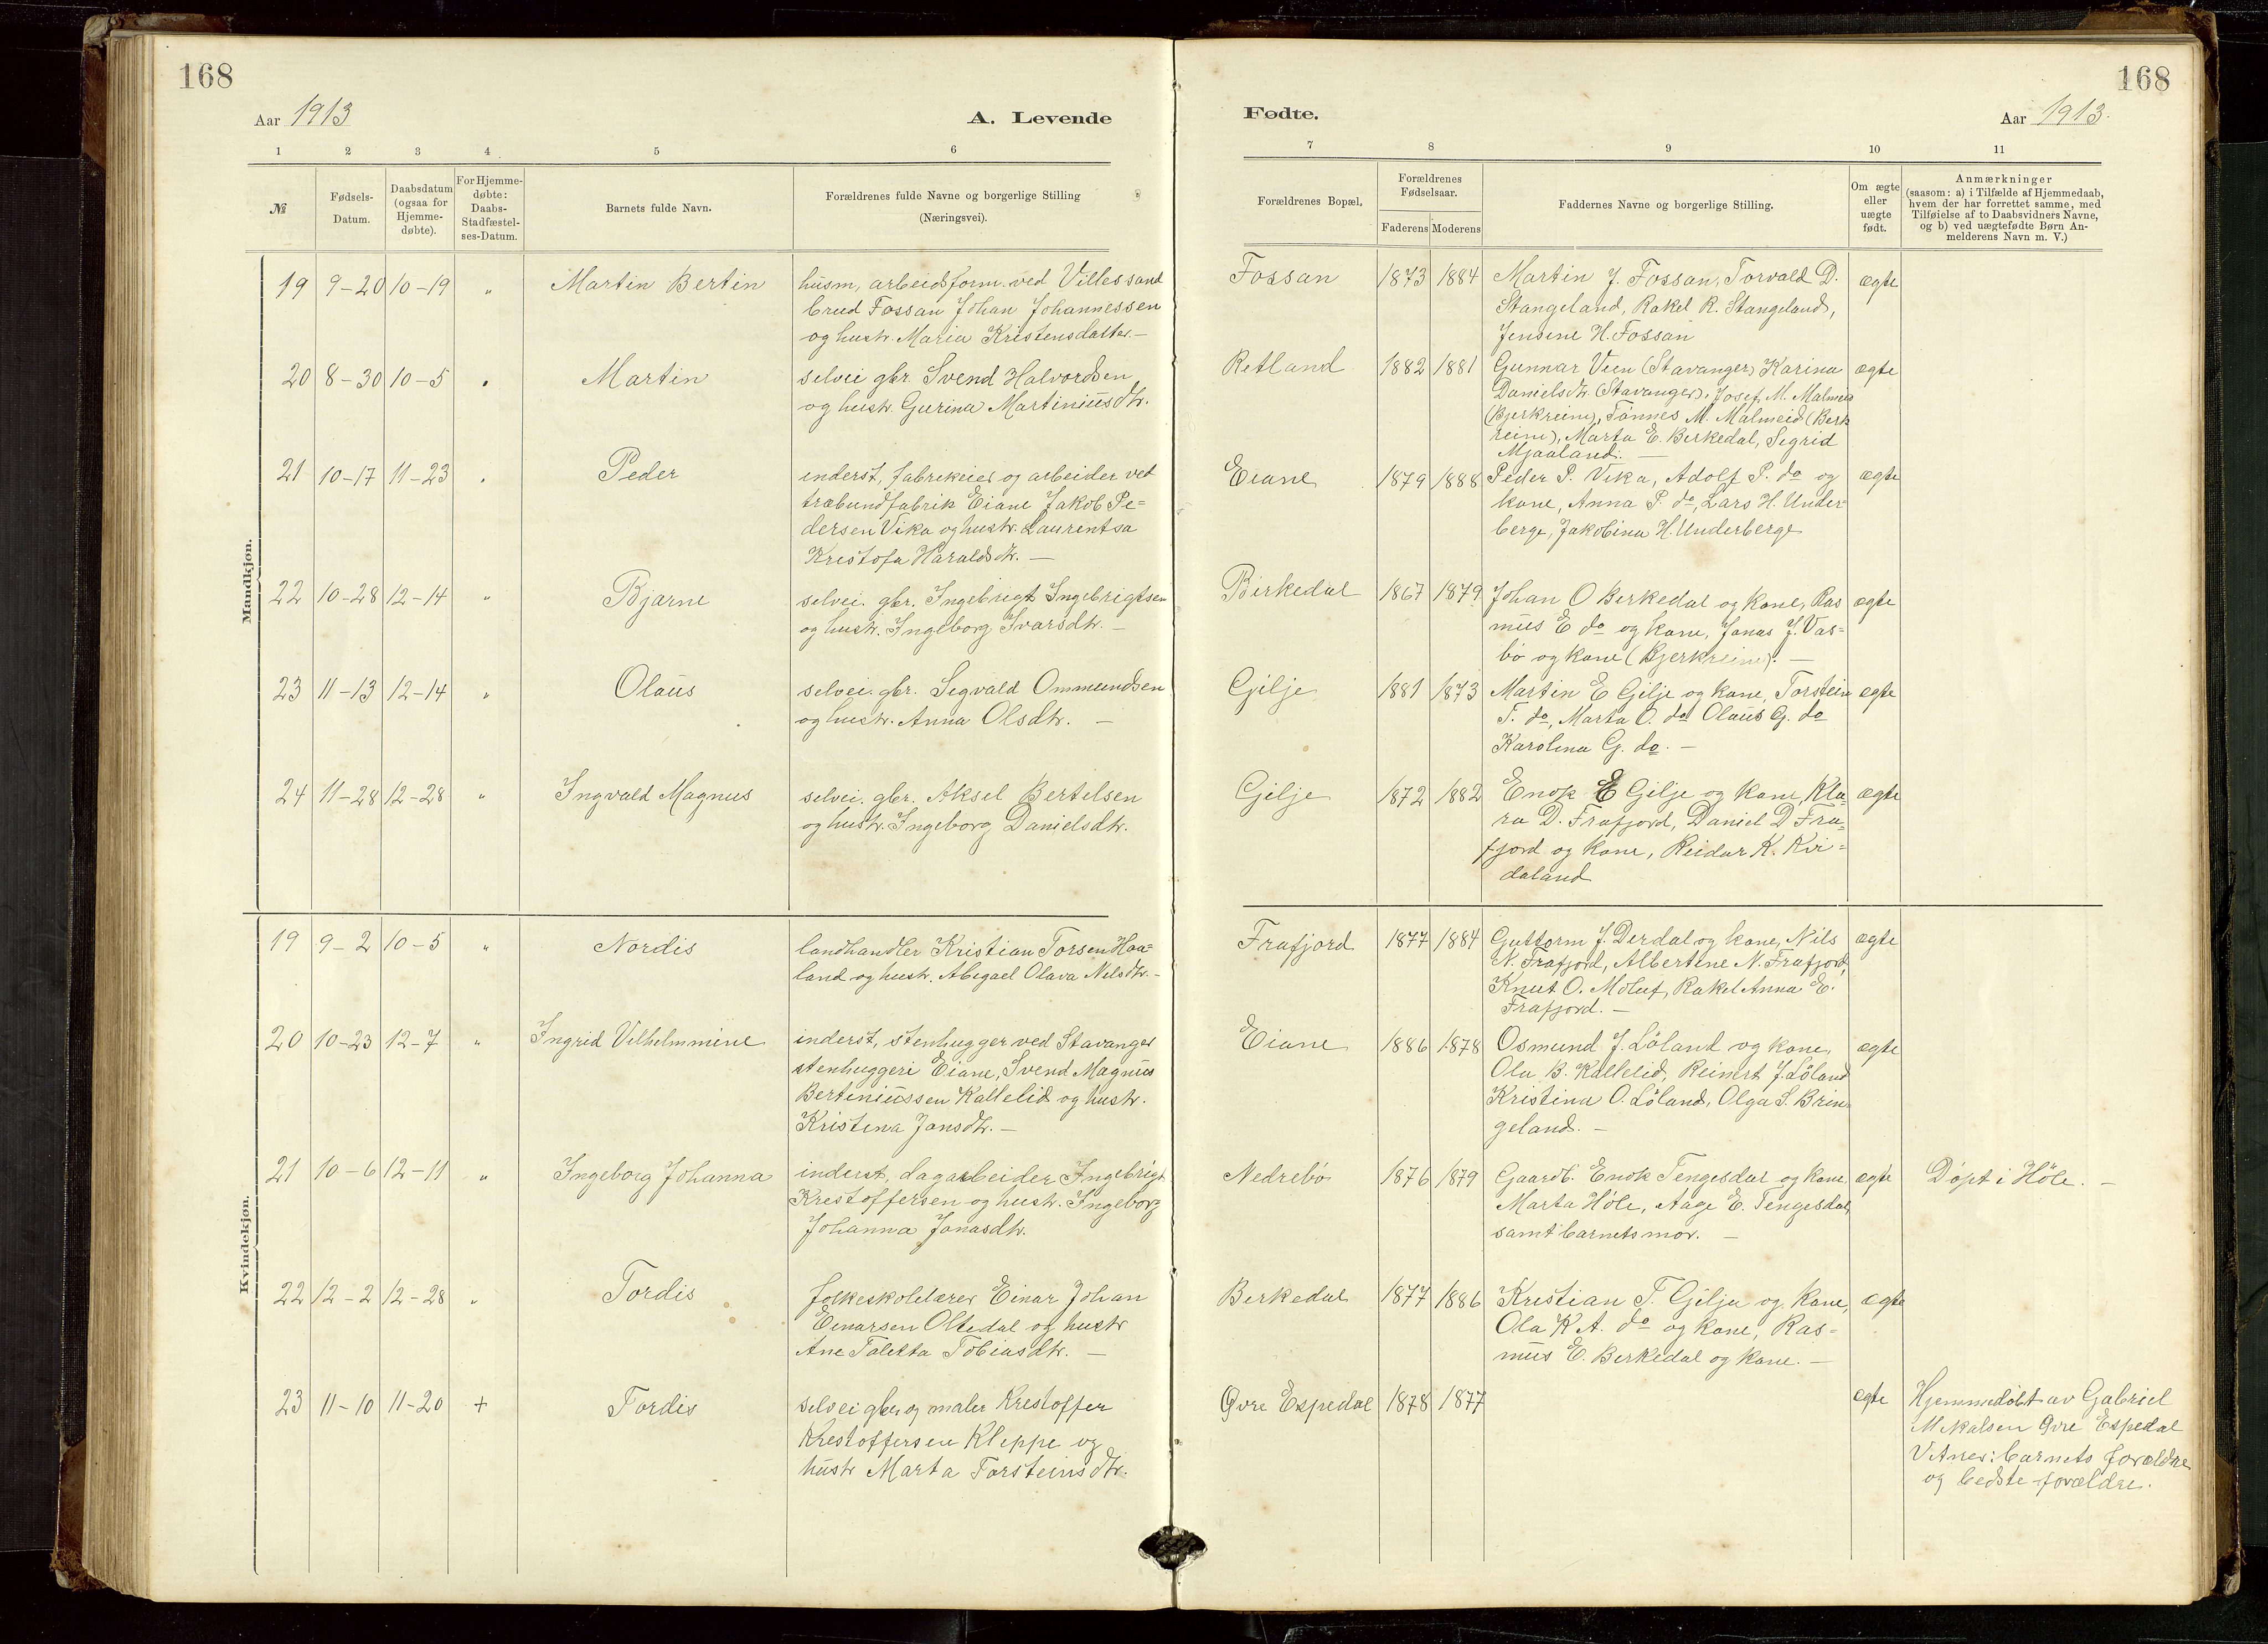 168
168
Aar 1913
A. Levende
Fødte.
Aar 1913.
1 2 3 4 5 6
7 8 9 10 11
№
Fødsels-
Datum.
Daabsdatum
(ogsaa for
Hjemme-
døbte).
For Hjemme-
døbte:
Daabs-
Stadfæstel-
ses-Datum.
Barnets fulde Navn.
Forældrenes fulde Navne og borgerlige Stilling
(Næringsvei).
Forældrenes Bopæl.
Forældrenes
Fødselsaar.
Faderens Moderens
Faddernes Navne og borgerlige Stilling.
Om ægte
eller
uægte
født.
Anmærkninger
(saasom: a) i Tilfælde af Hjemmedaab,
hvem der har forrettet samme, med
Tilføielse af to Daabsvidners Navne,
og b) ved uægtefødte Børn An-
melderens Navn m. V.)
Mandkjøn.
19 9-20 10-19 " Martin Bertin
husm, arbeidsform. ved Villes sand
brud Fossan Johan Johannessen
og hustr. Maria Kristensdatter. —
Fossan 1873 1884
Martin J. Fossan, Torvald D.
Stangeland, Rakel R. Stangeland,
Jensine H. Fossan
ægte
20 8-30 10-5 " Martin
selvei gbr. Svend Halvordsen
og hustr. Gurina Martiniusdtr.
Retland 1882 1881
Gunnar Veen (Stavanger) Karina
Danielsdtr. (Stavanger), Josef M. Malmeid
(Bjerkreim), Tönnes M. Malmeid (Berk
reim), Marta E. Berkedal, Segrid
Mjaaland. —
ægte
21 10-17 11-23 " Peder
inderst, fabrikeier og arbeider ved
træbundfabrik Eiane Jakob Pe=
dersen Vika og hustr. Laurentsa
Kristofa Haraldsdtr. —
Eiane 1879 1888
Peder P. Vika, Adolf P. do og
kone, Anna P. do, Lars H. Under=
berge, Jakobina H. Underberge
ægte
22 10-28 12-14 " Bjarne
selvei. gbr. Ingebrigt Ingebrigtsen
og hustr. Ingeborg Ivarsdtr. —
Birkedal 1867 1879
Johan O Berkedal og kone, Ras
mus E do og kone, Jonas J. Vas=
bö og kone (Bjerkreim). —
ægte
23 11-13 12-14 " Olaus
selvei. gbr. Segvald Ommundsen
og hustr. Anna Olsdtr. —
Gilje 1881 1873
Martin E Gilje og kone, Torstein
T. do, Marta O. do Olaus G. do
Karolina G. do. —
ægte
24 11-28 12-28 " Ingvald Magnus
selvei. gbr. Aksel Bertelsen
og hustr. Ingeborg Danielsdtr.
Gilje 1872 1882
Enok E Gilje og kone, Kla=
ra D. Frafjord, Daniel D Fra=
fjord og kone, Reidar K. Kvi=
daland
ægte
Kvindekjøn.
19 9-2 10-5 " Nordis
landhandler Kristian Torsen Haa=
land og hustr. Abigael Olava Nilsdtr. —
Frafjord 1877 1884
Guttorm J. Derdal og kone, Nils
N. Frafjord, Albertine N. Frafjord,
Knut O. Moluf, Rakel Anna E.
Frafjord. —
ægte
20 10-23 12-7 " Ingrid Vilhelmmine
inderst, stenhugger ved Stavanger
stenhuggeri Eiane, Svend Magnus
Bertiniussen Kallelid og hustr.
Kristina Jansdtr. —
Eiane 1886 1878
Osmund J. Löland og kone,
Ola B. Kallelid, Reinert J. Löland
Kristina O. Löland, Olga S. Brin
geland. —
ægte
21 10-6 12-11 " Ingeborg Johanna
inderst, dagarbeider Ingebrigt
Kristoffersen og hustr. Ingeborg
Johanna Jonasdtr.
Nedrebö 1876 1879
Gaardb. Enok Tengesdal og kone
Marta Höle, Aage E. Tengesdal,
samt barnets mor. —
ægte
Döpt i Höle. —
22 12-2 12-28 " Tordis
folkeskolelærer Einar Johan
Einarsen Oltedal og hustr
Ane Taletta Tobiasdtr. —
Berkedal 1877 1886
Kristian T. Gilja og kone,
Ola K A. do og kone, Ras=
mus E. Berkedal og kone. —
ægte
23 11-10 11-20 + Tordis
selvei gbr og maler Kristoffer
Kristoffersen Kleppe og
hustr Marta Torsteinsdtr.
Övre Espedal 1878 1877
ægte
Hjemmedöbt av Gabriel
Mikalsen Övre Espedal
Vitner: barnets forældre
og bedste-forældre.